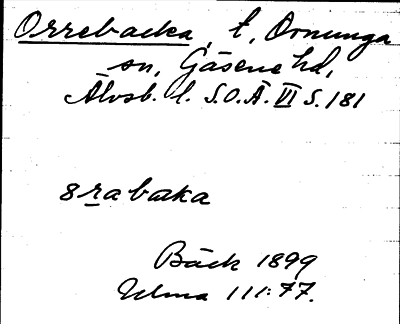 Orrebacka, t, Ornunga
sn, Gäsene hd,
Älvsb. l. S.O.Ä. VI S. 181
8rabaka
Bäck 1899
Ulma 111:77.